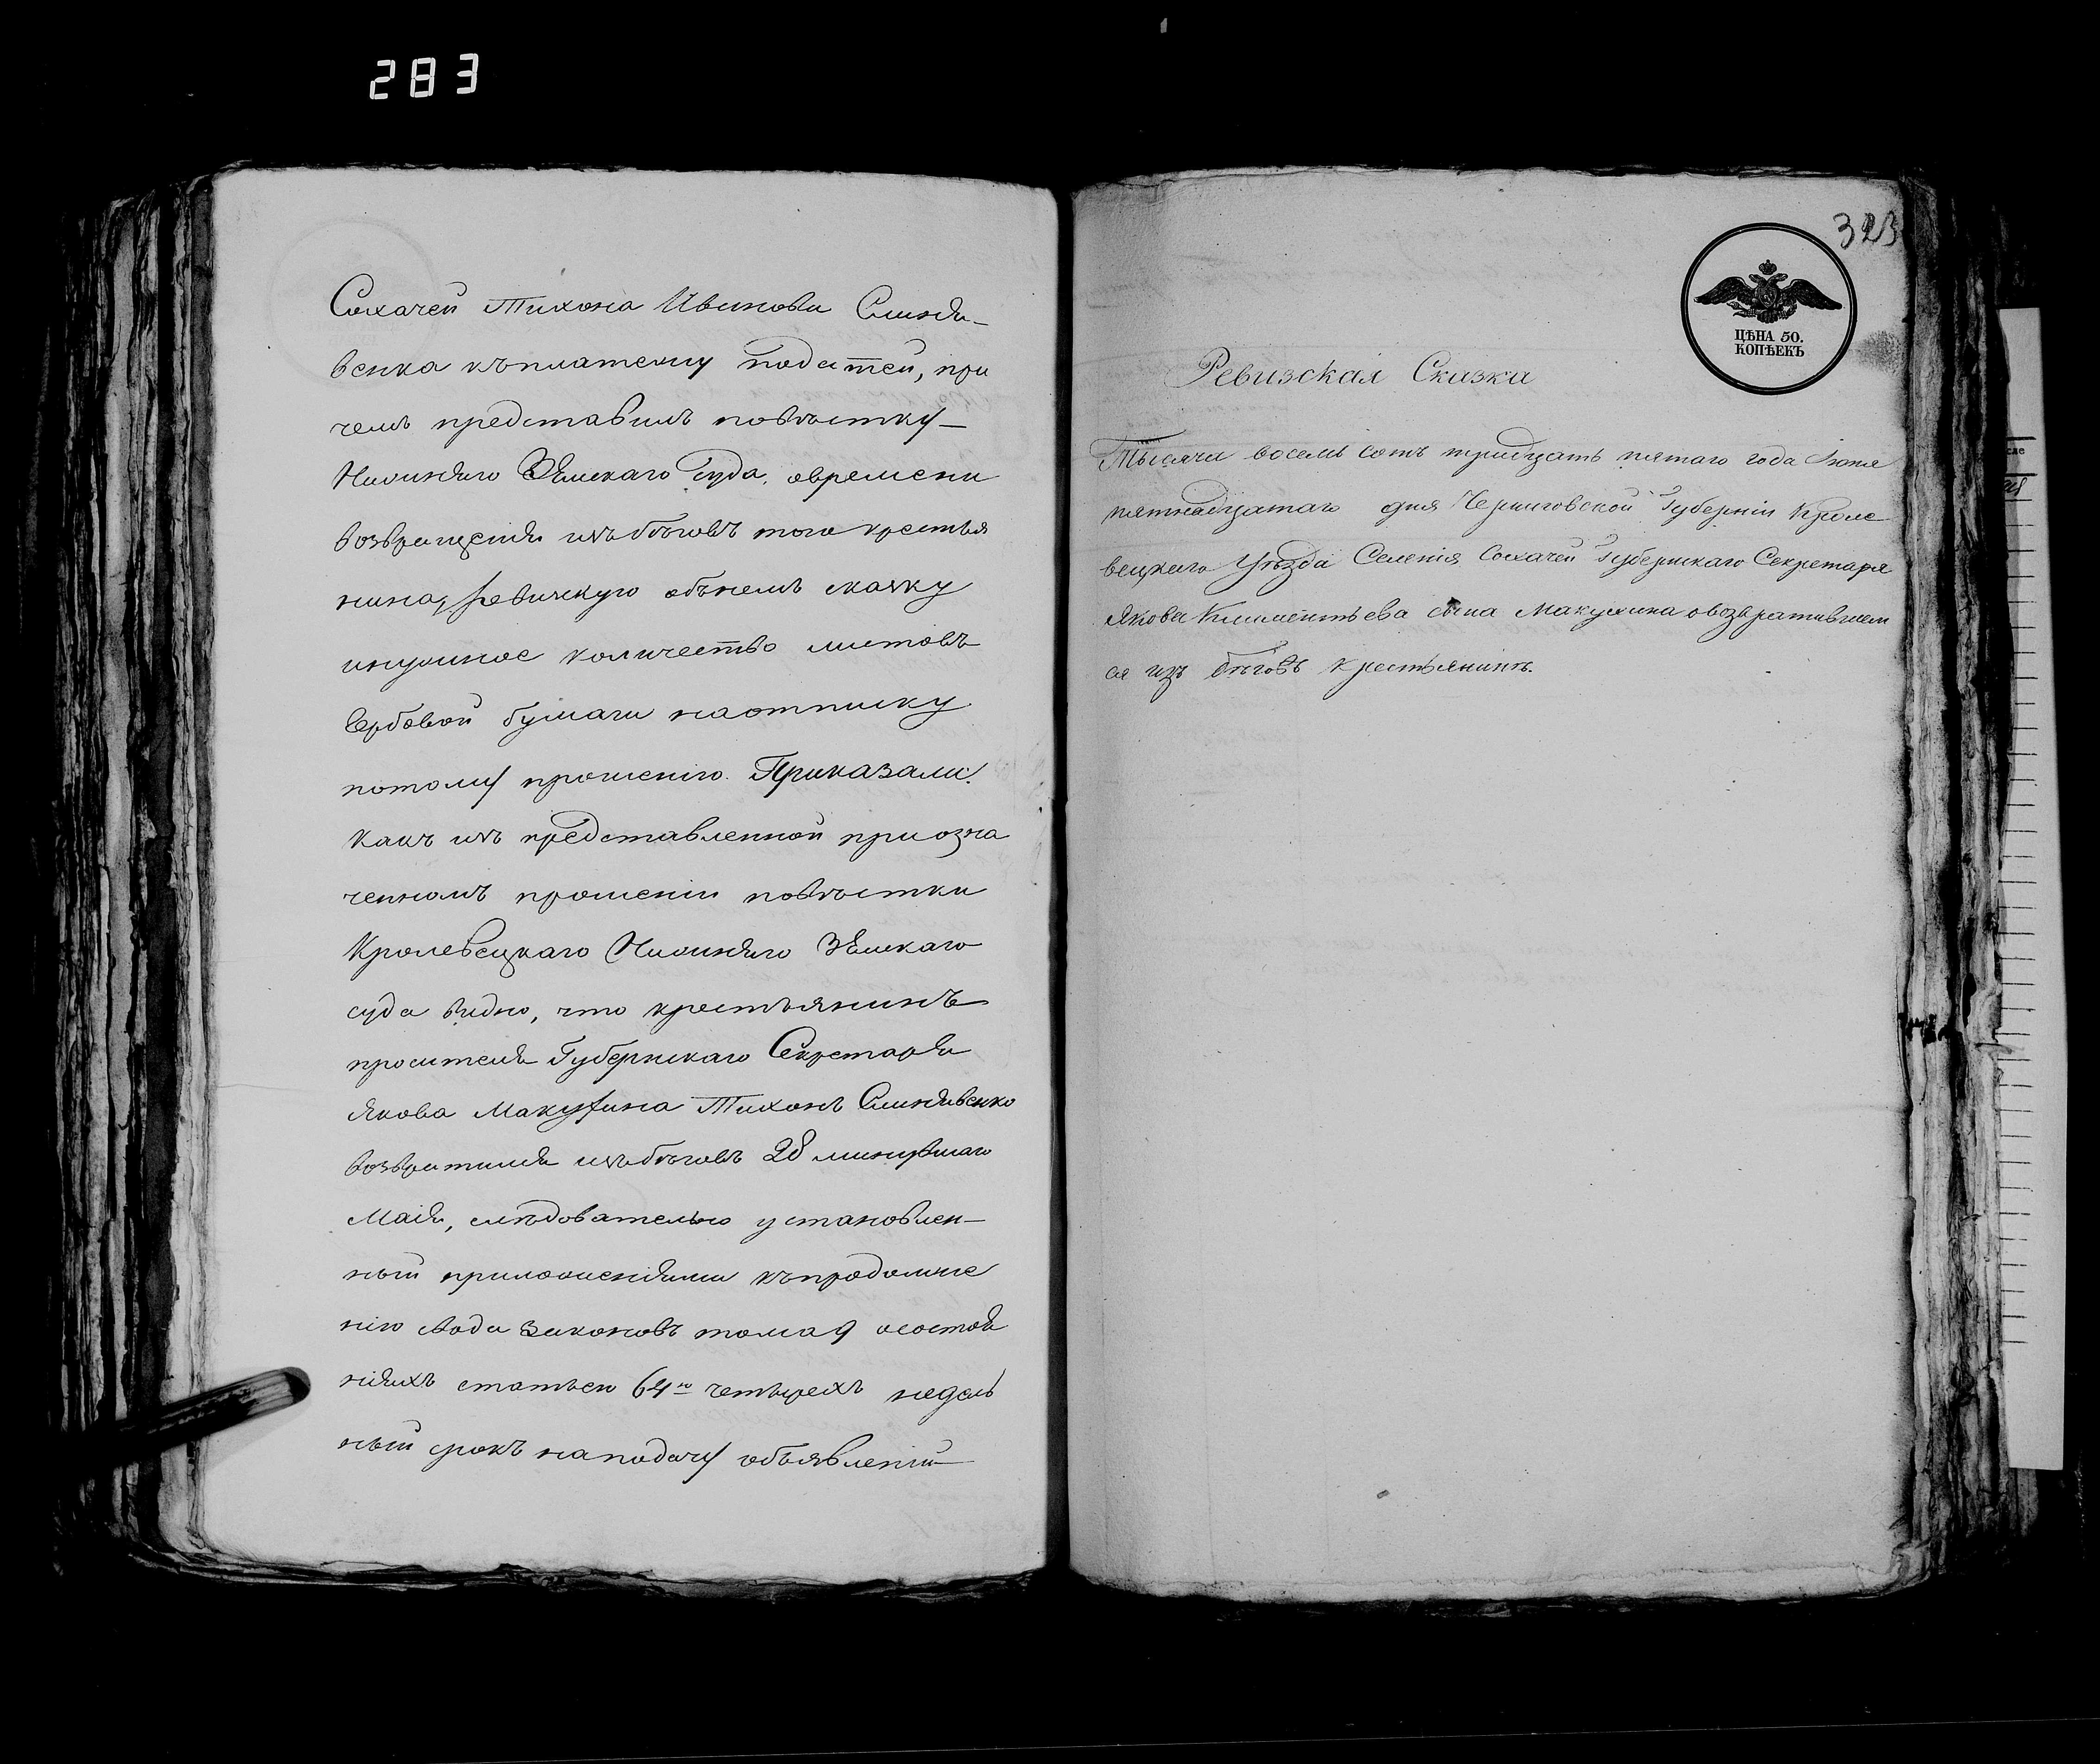 283
Сохачей Тихона Иванова Слиня-
венка къплатежу податей, при
чемъ представилъ повѣстку
Нижняго Земскаго Суда, овремени
возвращенія изъбѣговъ того крестья
нина, ревизскую обънемъ сказку
инужное количество листовъ
Гербовой бумаги наотписку
потому прошенію. Приказали:
какъ изъ представленной приозна
ченномъ прошеніи повѣстки
Кролевецкаго Нижняго Земскаго
суда видно, что крестьянинъ
просителя Губернскаго Секретаря
Якова Макухина Тихонъ Слинявенко
возвратился изъбѣговъ 28 минувшаго
Маія, слѣдовательно установлен-
ный приложеніями къпродолже
нію свода законовъ тома 9 осостоя
ніяхъ статьею 64ю четырехъ недель
ный срокъ наподачу объявленій
323
ЦѢНА 50.
КОПѢЕКЪ
Ревизская Сказка
Тысяча восемь сотъ тридцать пятаго года Іюня
пятнадцатаго дня Черниговской Губерніи Кроле
вецкаго Уѣзда Селенія Сохачей Губернскаго Секретаря
Якова Климентьева сына Макухина овозвратившем
ся изъ бѣговъ крестьянинѣ.